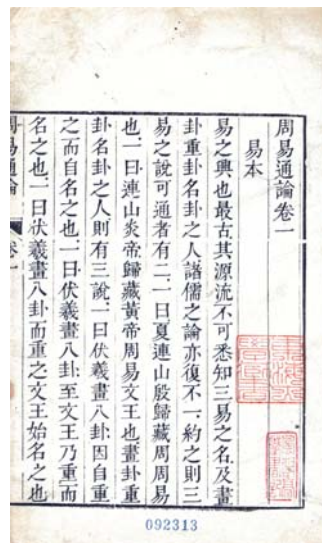 周易通論卷一
易本
易之興也最古其源流不可悉知三易之名及畫
卦重卦名卦之人諸儒之論亦復不一約之則三
易之說可通者有二一曰夏連山殷歸藏周周易
也一曰連山炎帝歸藏黃帝周易文王也畫卦重
卦名卦之人則有三說一曰伏羲畫八卦因自重
之而自名之也一曰伏羲畫八卦至文王乃重而
名之也一曰伏羲畫八卦而重之文王始名之也
周易通論 卷一
092313